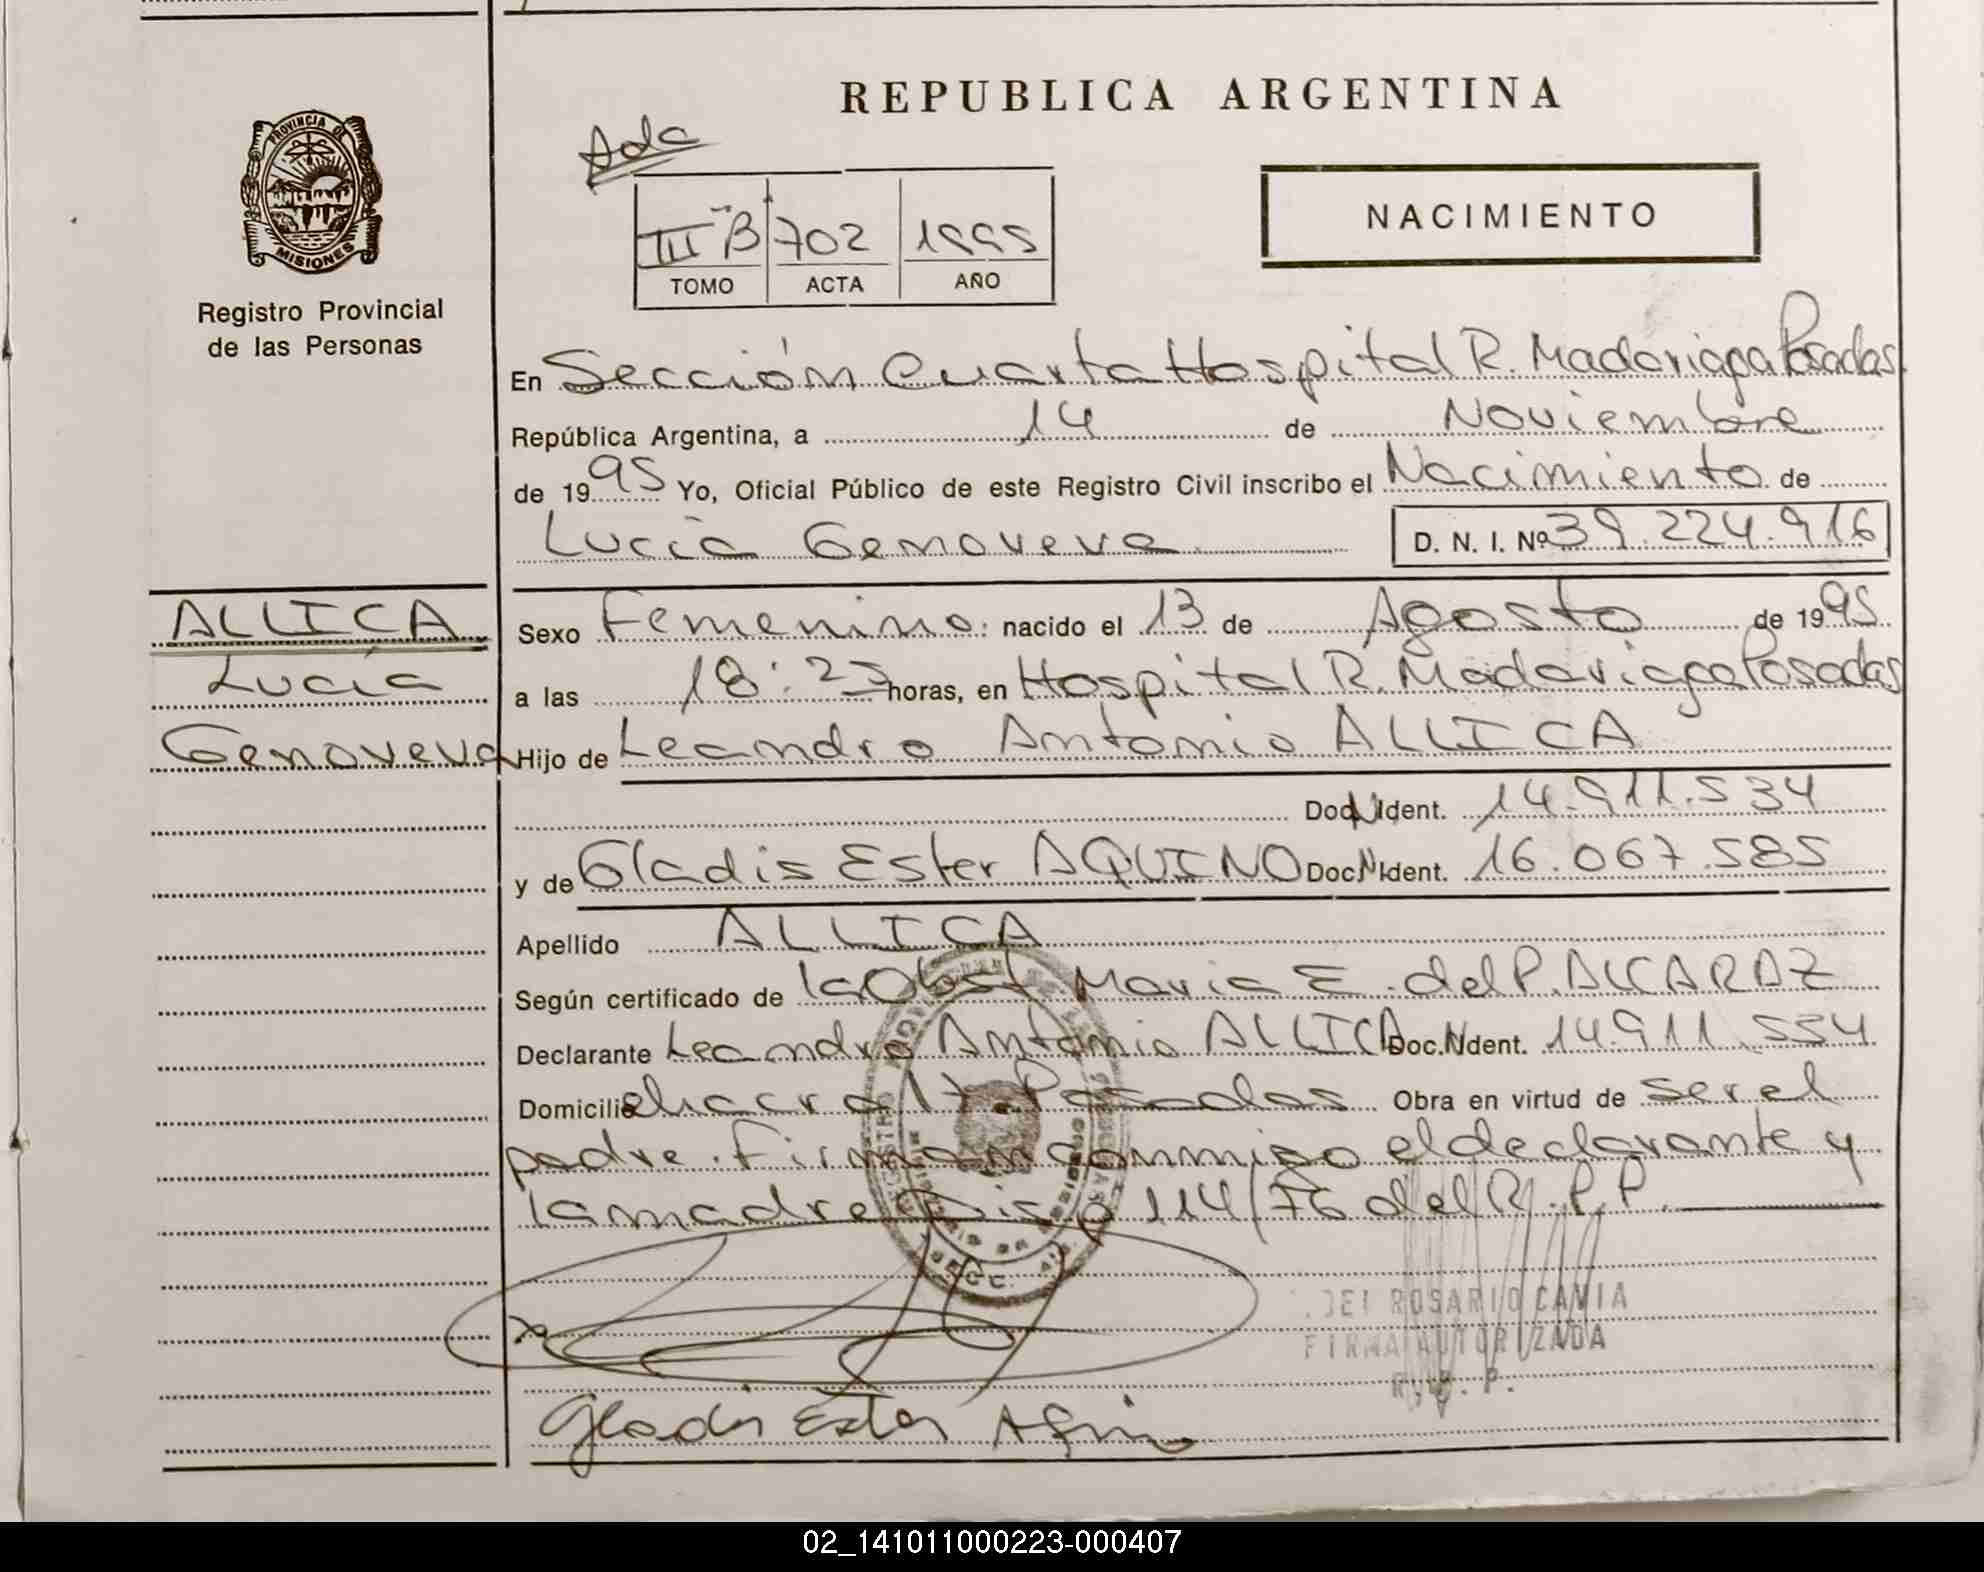 REPUBLICA ARGENTINA
Ada
PROVINCIA DE
MISIONES
Registro Provincial
de las Personas
III B 702 1995
TOMO ACTA AÑO
NACIMIENTO
En Sección Cuarta Hospital R. Madariaga Posadas
República Argentina, a 14 de Noviembre
de 1995 Yo, Oficial Público de este Registro Civil inscribo el Nacimiento de
Lucia Genoveva D. N. I. Nº 39.224.916
ALLICA
Lucía
Genoveva
Sexo Femenino: nacido el 13 de Agosto de 1995
a las 18:25 horas, en Hospital R. Madariaga Posadas
Hijo de Leandro Antonio ALLICA
Doc.N.Ident. 14.911.534
y de Gladis Ester AQUINO Doc.N.Ident. 16.067.585
Apellido ALLICA
Según certificado de la Obst. Maria E. del P. ALCARAZ
Declarante Leandro Antonio ALLICA Doc.N.Ident. 14.911.534
Domicilio chacra Posadas Obra en virtud de ser el
padre. Firman conmigo el declarante y
la madre Disp 114/76 del R.P.P.
DEL ROSARIO CAVIA
FIRMA AUTORIZADA
R. P. P.
Gladis Ester
02_141011000223-000407